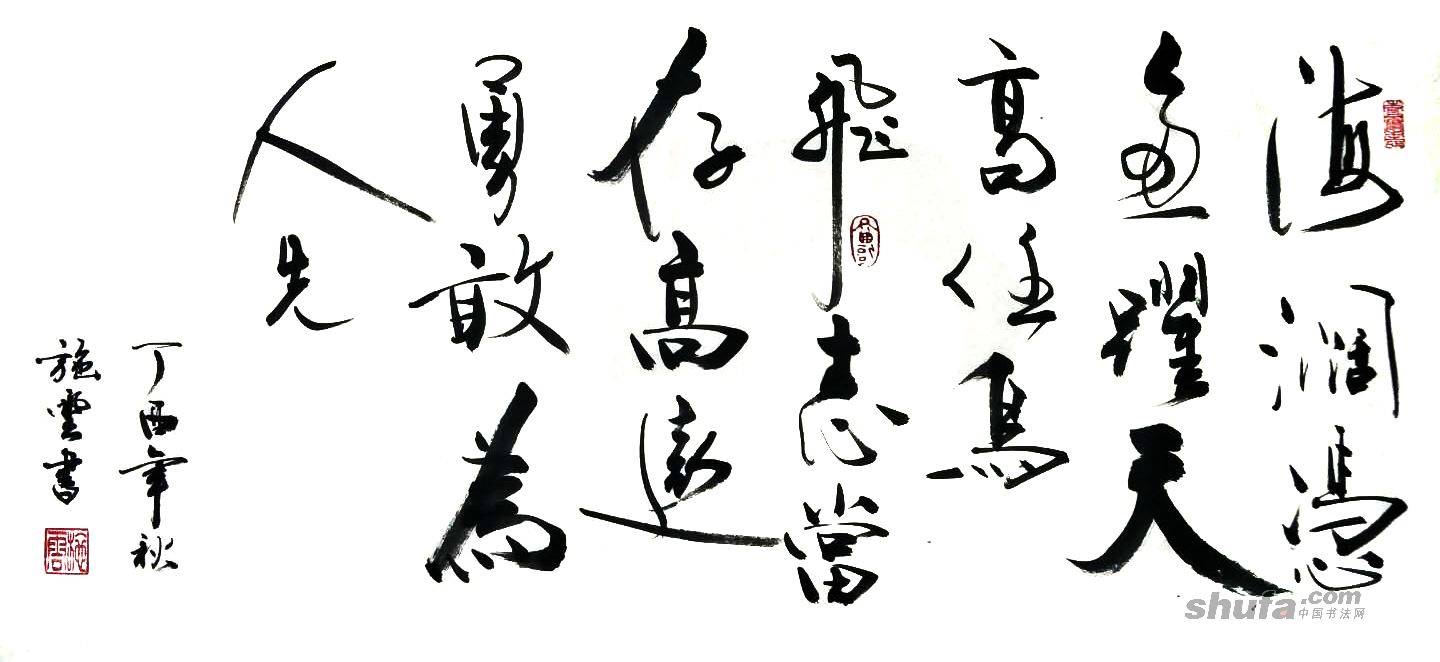 海闊憑
魚躍天
高任鳥
飛志當
存高遠
勇敢為
人先
丁酉年秋
施雲書
施雲
shufa.com
中国书法网